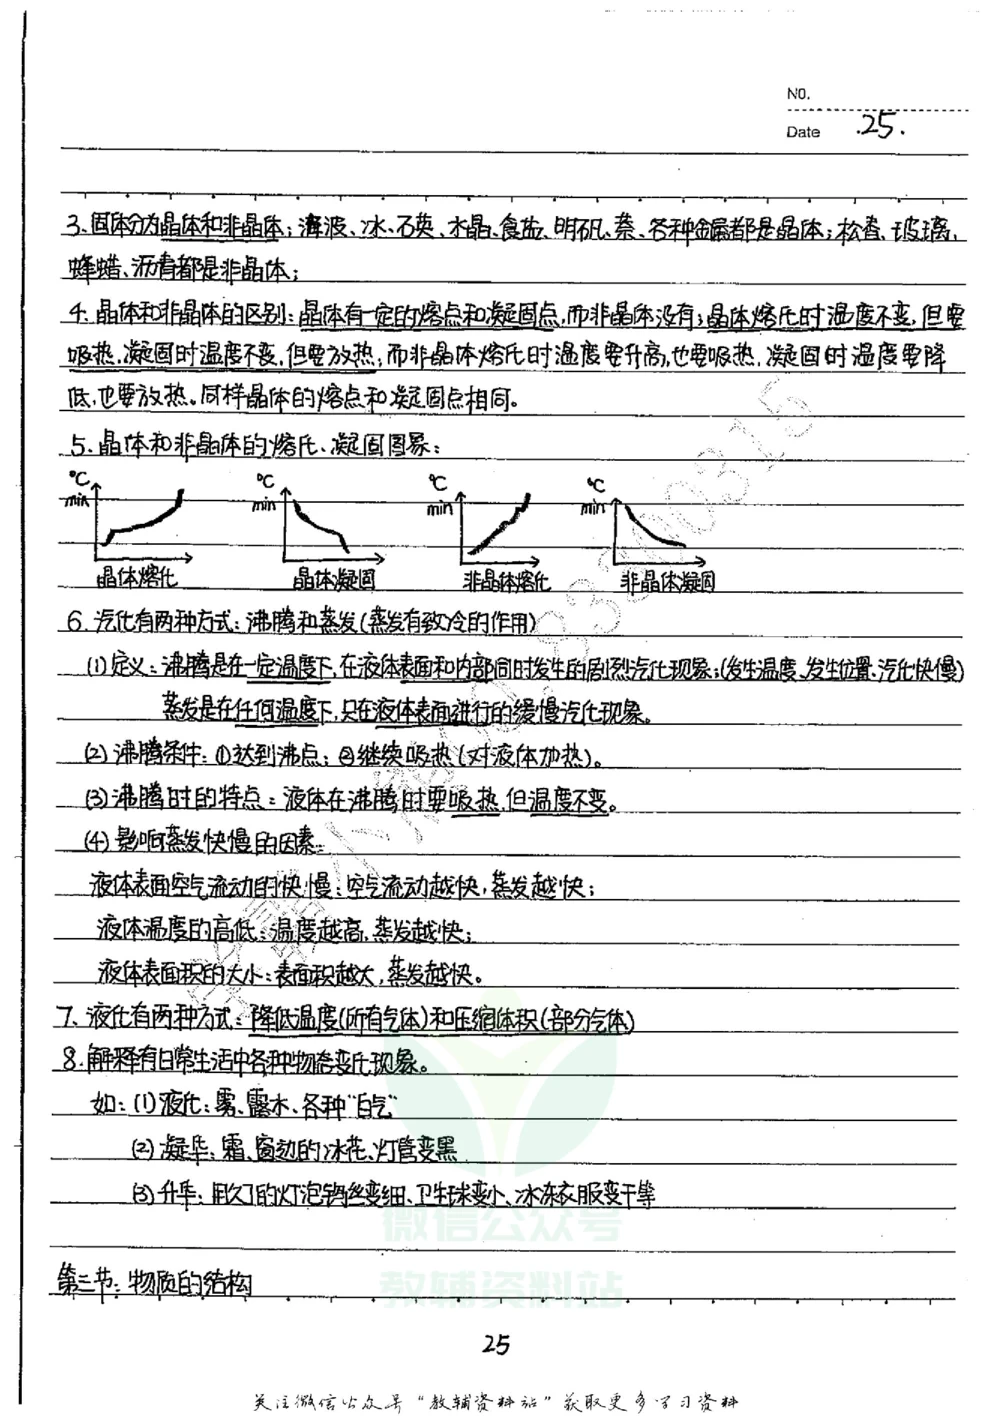 NO.
Date .25.
3、固体分为晶体和非晶体；海波、冰、石英、水晶、食盐、明矾、萘、各种金属都是晶体；松香、玻璃、
蜂蜡、沥青都是非晶体；
4、晶体和非晶体的区别：晶体有一定的熔点和凝固点，而非晶体没有；晶体熔化时温度不变，但要
吸热，凝固时温度不变，但要放热；而非晶体熔化时温度要升高，也要吸热，凝固时温度要降
低，也要放热。同样晶体的熔点和凝固点相同。
5、晶体和非晶体的熔化、凝固图象：
℃ ℃ ℃ ℃
min min min min
晶体熔化 晶体凝固 非晶体熔化 非晶体凝固
6、汽化有两种方式：沸腾和蒸发（蒸发有致冷的作用）
(1)定义：沸腾是在一定温度下，在液体表面和内部同时发生的剧烈汽化现象；(发生温度、发生位置、汽化快慢)
蒸发是在任何温度下，只在液体表面进行的缓慢汽化现象。
(2)沸腾条件：①达到沸点；②继续吸热(对液体加热)。
(3)沸腾时的特点：液体在沸腾时要吸热，但温度不变。
(4)影响蒸发快慢的因素：
液体表面空气流动的快慢：空气流动越快，蒸发越快；
液体温度的高低：温度越高，蒸发越快；
液体表面积的大小：表面积越大，蒸发越快。
7、液化有两种方式：降低温度(所有气体)和压缩体积(部分气体)
8、解释有日常生活中各种物态变化现象。
如：(1)液化：雾、露水、各种“白气”
(2)凝华：霜、窗边的冰花、灯管变黑
(3)升华：用久了的灯泡钨丝变细、卫生球变小、冰冻衣服变干等
微信公众号
教辅资料站
第三节：物质的结构
25
关注微信公众号“教辅资料站”获取更多学习资料